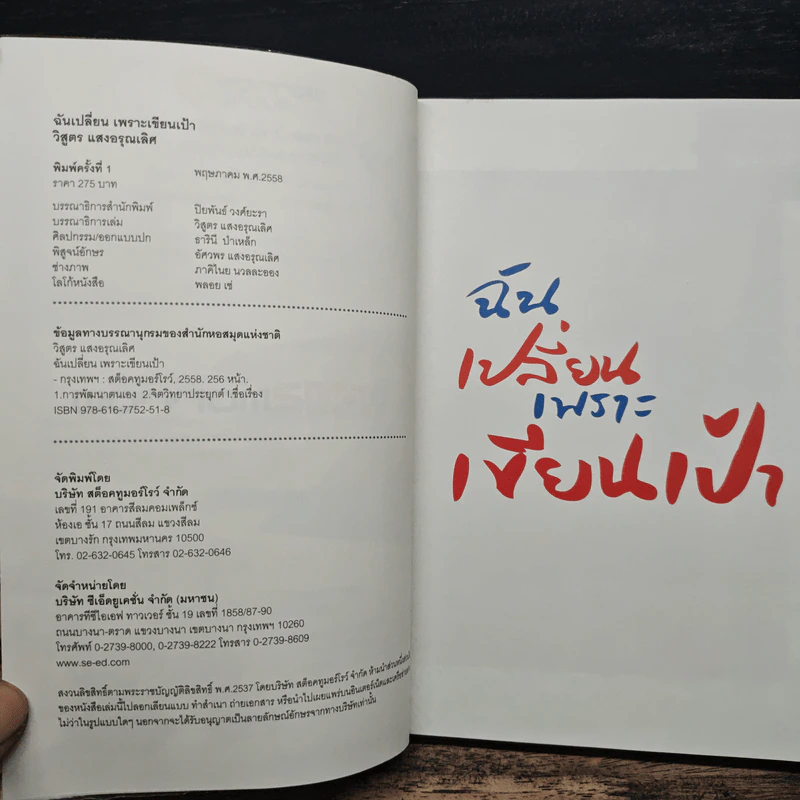 ฉันเปลี่ยน เพราะเขียนเป้า
วิสูตร แสงอรุณเลิศ
พิมพ์ครั้งที่ 1 พฤษภาคม พ.ศ.2558
ราคา 275 บาท
บรรณาธิการสำนักพิมพ์ ปิยพันธ์ วงศ์ยะรา
บรรณาธิการเล่ม วิสูตร แสงอรุณเลิศ
ศิลปกรรม/ออกแบบปก ธารินี ป่าเหล็ก
พิสูจน์อักษร อัศวพร แสงอรุณเลิศ
ช่างภาพ ภาคิไนย นวลละออง
โลโก้หนังสือ พลอย เช่
ข้อมูลทางบรรณานุกรมของสำนักหอสมุดแห่งชาติ
วิสูตร แสงอรุณเลิศ
ฉันเปลี่ยน เพราะเขียนเป้า
- กรุงเทพฯ : สต็อคทูมอร์โรว์, 2558. 256 หน้า.
1.การพัฒนาตนเอง 2.จิตวิทยาประยุกต์ I.ชื่อเรื่อง
ISBN 978-616-7752-51-8
จัดพิมพ์โดย
บริษัท สต็อคทูมอร์โรว์ จำกัด
เลขที่ 191 อาคารสีลมคอมเพล็กซ์
ห้องเอ ชั้น 17 ถนนสีลม แขวงสีลม
เขตบางรัก กรุงเทพมหานคร 10500
โทร. 02-632-0645 โทรสาร 02-632-0646
จัดจำหน่ายโดย
บริษัท ซีเอ็ดยูเคชั่น จำกัด (มหาชน)
อาคารทีซีไอเอฟ ทาวเวอร์ ชั้น 19 เลขที่ 1858/87-90
ถนนบางนา-ตราด แขวงบางนา เขตบางนา กรุงเทพฯ 10260
โทรศัพท์ 0-2739-8000, 0-2739-8222 โทรสาร 0-2739-8609
www.se-ed.com
สงวนลิขสิทธิ์ตามพระราชบัญญัติลิขสิทธิ์ พ.ศ.2537 โดยบริษัท สต็อคทูมอร์โรว์ จำกัด ห้ามนำส่วนหนึ่งส่วนใด
ของหนังสือเล่มนี้ไปลอกเลียนแบบ ทำสำเนา ถ่ายเอกสาร หรือนำไปเผยแพร่บนอินเตอร์เน็ตและเครือข่ายต่างๆ
ไม่ว่าในรูปแบบใดๆ นอกจากจะได้รับอนุญาตเป็นลายลักษณ์อักษรจากทางบริษัทเท่านั้น
ฉัน
เปลี่ยน
เพราะ
เขียนเป้า